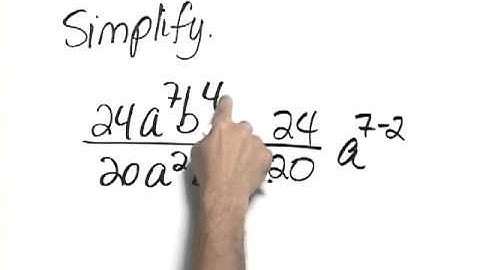 Simplify.
24a⁷b⁴ 24 a⁷⁻²
20a² 20